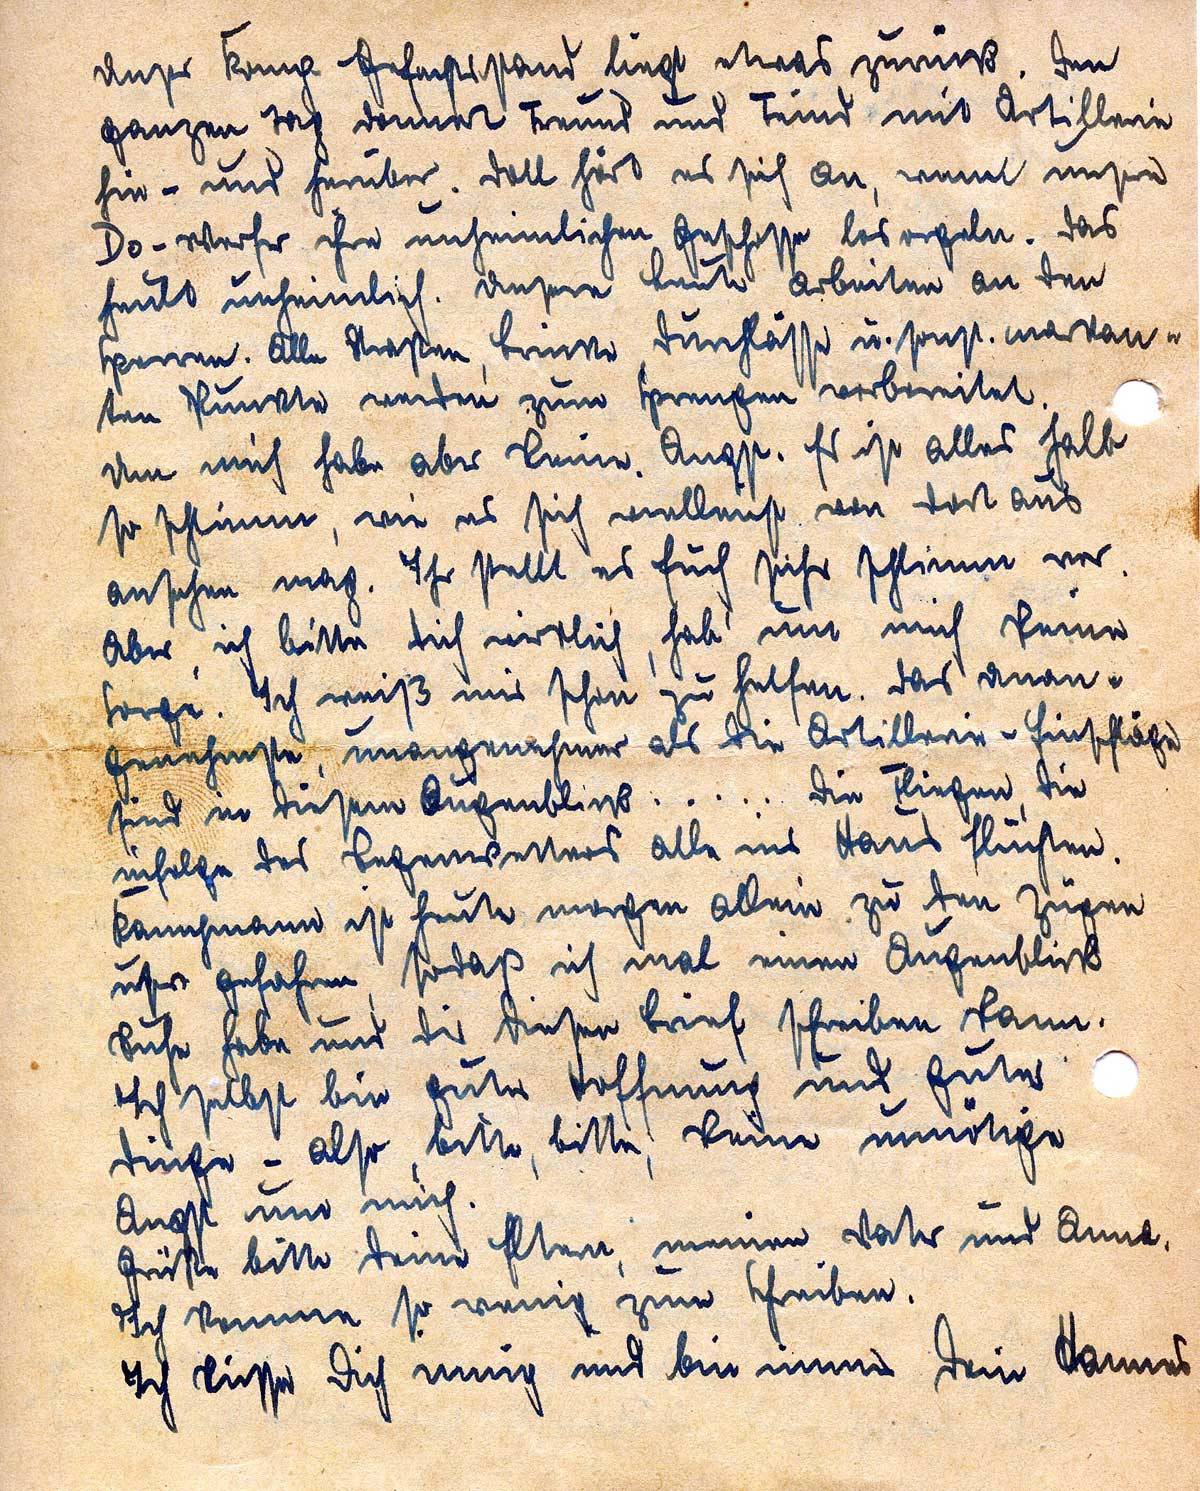 Unser Komp. Gefechtsstand liegt etwas zurück. Den
ganzen Tag donnert Freund und Feind mit Artillerie
hin- und herüber. Doll hört es sich an, wenn unsere
Do-Werfer ihre unheimlichen Geschosse losorgeln. Das
heult unheimlich. Unsere Leute arbeiten an den
Sperren. Alle Straßen, Brücken, Durchlässe u. sonst. markan-
ten Punkte werden zum Sprengen vorbereitet.
Um mich habe aber keine Angst. Es ist alles halb
so schlimm, wie es sich vielleicht von dort aus
ansehen mag. Ihr stellt es Euch sehr schlimm vor.
Aber, ich bitte Dich wirklich, hab' um mich keine
Sorge. Ich weiß mir schon zu helfen. Das unan-
genehmste, unangenehmer als die Artillerie-Einschläge
sind in diesem Augenblick ..... die Fliegen, die
infolge des Regenwetters alle ins Haus flüchten.
ist heute morgen allein zu den Zügen
gefahren, sodaß ich mal einen Augenblick
Ruhe habe und dir diesen Brief schreiben kann.
Ich selbst bin guter Hoffnung und guter
Dinge - also, bitte, bitte, keine unnötige
Angst um mich.
Grüße bitte Deine Eltern, meinen Vater und Anna.
Ich komme so wenig zum Schreiben.
Ich küsse Dich innig und bin immer Dein Hannes